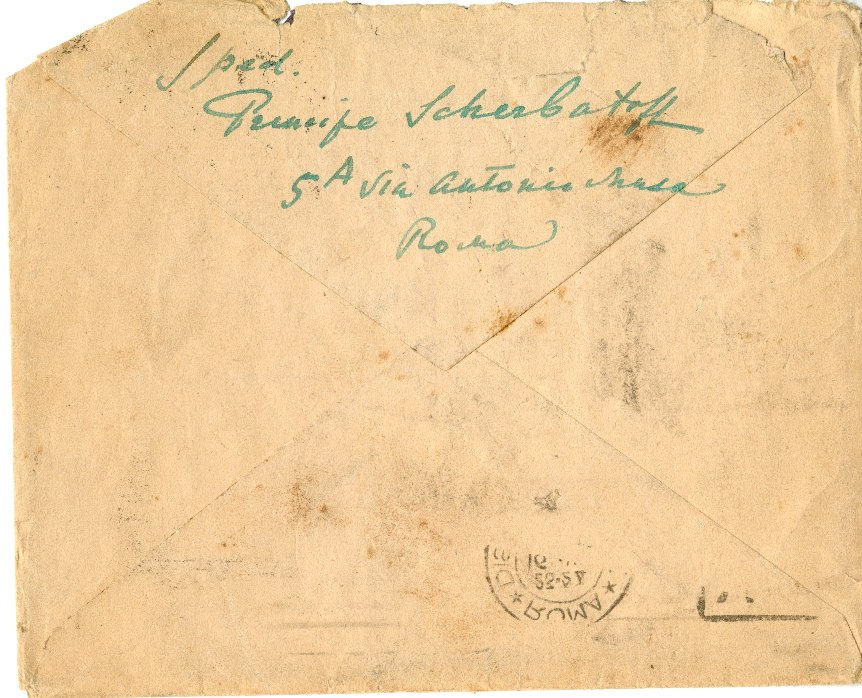 Sped.
Principe Scherbatoff
5A Via Antonio Musa
Roma
ROMA